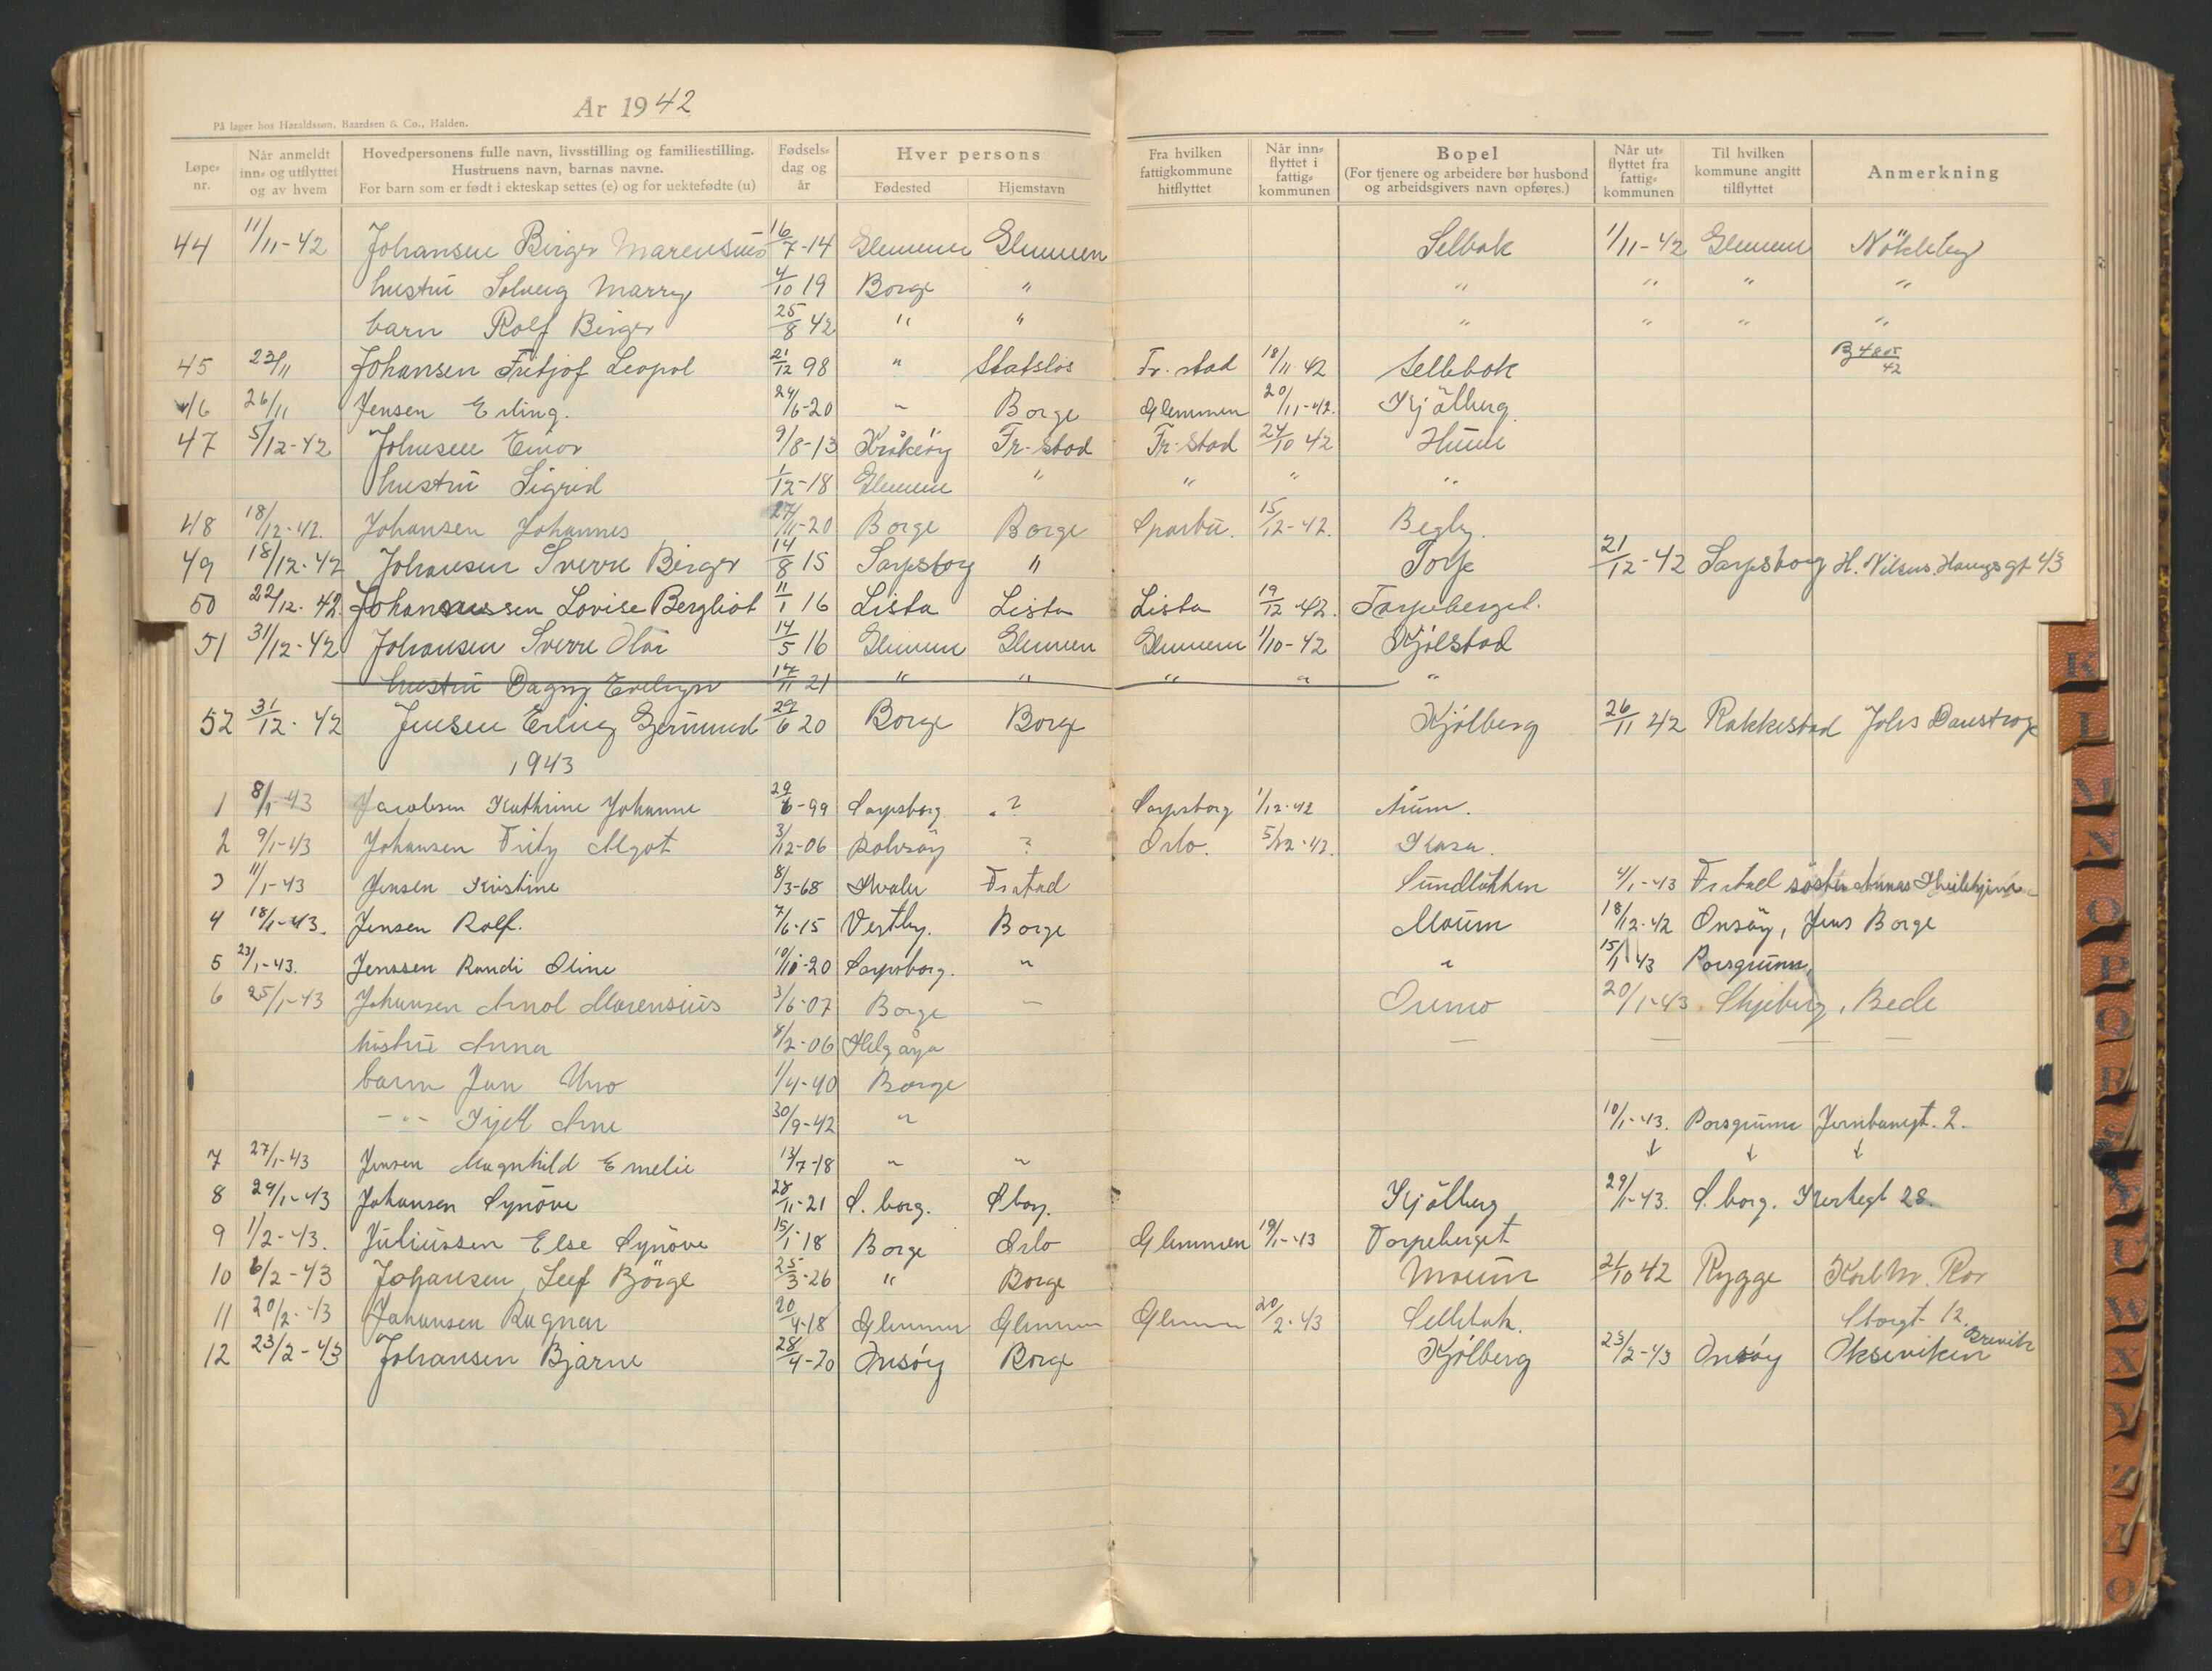 År 1942
På lager hos Haraldssøn, Baardsen & Co., Halden.
Løpe-nr. | Når anmeldt inn- og utflyttet og av hvem | Hovedpersonens fulle navn, livsstilling og familiestilling. Hustruens navn, barnas navne. For barn som er født i ekteskap settes (e) og for uektefødte (u) | Fødsels-dag og år | Hver persons Fødested | Hjemstavn | Fra hvilken fattigkommune hitflyttet | Når inn-flyttet i fattig-kommunen | Bopel (For tjenere og arbeidere bør husbond og arbeidsgivers navn opføres.) | Når ut-flyttet fra fattig-kommunen | Til hvilken kommune angitt tilflyttet | Anmerkning
44 11/11-42 Johansen Birger Marensius 16/7-14 Glemmen Glemmen Selbak 1/11-42 Glemmen Nökleby
hustru Solveig Marry 4/10 19 Borge " " " " "
barn Rolf Birger 25/8 42 " " " " " "
45 23/11 Johansen Fritjof Leopol 21/12 98 " Statslös Fr. stad 18/11 42 Sellebak B 4805/42
46 26/11 Jensen Erling. 29/6-20 " Borge Glemmen 20/11-42. Kjölberg.
47 5/12-42 Johnsen Einar 9/8-13 Kråkeröy Fr-stad Fr-stad 24/10 42 Hunn
hustru Sigrid 1/12-18 Glemmen " " " "
48 18/12-42. Johansen Johannes 27/11-20 Borge Borge Sparbu. 15/12-42. Begby.
49 18/12-42 Johansen Sverre Birger 14/8 15 Sarpsborg " Torp 21/12-42 Sarpsborg H. Nilsens Haugsgt 43
50 22/12-42. Johanssen Lovise Bergliot 11/1 16 Lista Lista Lista 19/12-42. Torpeberget.
51 31/12-42 Johansen Sverre Olav 14/5 16 Glemmen Glemmen Glemmen 1/10-42 Kjölstad
hustru Dagny Evelyn 14/11 21 " " " " "
52 31/12-42 Jensen Erling Germund 29/6 20 Borge Borge Kjölberg 26/11 42 Rakkestad Johs Danstrop
1943
1 8/1-43 Jacobsen Kathrine Johanne 29/6-99 Sarpsborg ? Sarpsborg 1/12-42 Årum.
2 9/1-43 Johansen Fritz Algot 3/12-06 Rolvsöy ? Oslo. 5/12-42. Kasa.
3 11/1-43 Jensen Kristine 8/3-68 Hvaler Frstad Sundlökken 4/1-43 Frstad söster Annas Hvilehjem
4 18/1-43. Jensen Rolf. 7/6-15 Vestby. Borge Moum 18/12-42 Onsöy, Jens Borge
5 23/1-43. Jenssen Randi Oline 10/10-20 Sarpsborg. " " 15/1 43 Porsgrunn,
6 25/1-43 Johansen Arnol Marensius 3/6-07 Borge — Oremo 20/1-43. Skjeberg, Bede
hustru Anna 8/2-06 Helgøya — — — —
barn Jan Uno 1/4-40 Borge
-"- Kjell Arne 30/9-42 " 10/1-43. Porsgrunn Jernbanegt. 2.
7 27/1-43 Jensen Magnhild Emelie 13/7-18 " " ↓ ↓ ↓
8 29/1-43 Johansen Synöve 28/11-21 S. borg. Sborg. Kjölberg 29/1-43. S. borg. Kirkegt 28.
9 1/2-43. Juliussen Else Synöve 15/1-18 Borge Oslo Glemmen 19/1-43 Torpeberget
10 6/2-43 Johansen, Leif Börge 25/3-26 " Borge Moum 21/10 42 Rygge Karl M. Ror
11 20/2-43 Johansen Ragnar 20/4-18 Glemmen Glemmen Glemmen 20/2-43 Sellebak. Storgt 12.
12 23/2-43 Johansen Bjarne 28/4-20 Onsöy Borge Kjölberg 23/2-43 Onsöy Oksviken Brevik
K L M N O P Q R S T U W X Y Z Æ O